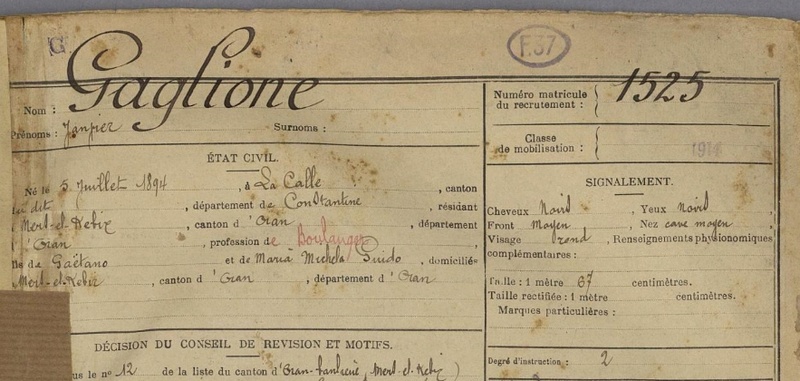 G
F.37
Nom : Gaglione
Prénoms : Janvier Surnoms :
Numéro matricule du recrutement : 1525
Classe de mobilisation : 1914
ÉTAT CIVIL.
Né le 5 Juillet 1894, à La Calle, canton
du dit, département de Constantine, résidant
Mers-el-Kebir, canton d'Oran, département
d'Oran, profession de Boulanger
fils de Gaëtano et de Maria Michela Guido, domiciliés
Mers-el-Kebir, canton d'Oran, département d'Oran
SIGNALEMENT.
Cheveux Noirs, Yeux Noirs,
Front Moyen, Nez cave moyen,
Visage rond, Renseignements physionomiques
complémentaires :
Taille : 1 mètre 67 centimètres.
Taille rectifiée : 1 mètre centimètres.
Marques particulières :
Degré d'instruction : 2
DÉCISION DU CONSEIL DE REVISION ET MOTIFS.
us le nº 12 de la liste du canton d'Oran-banlieue, Mers-el-Kebir)